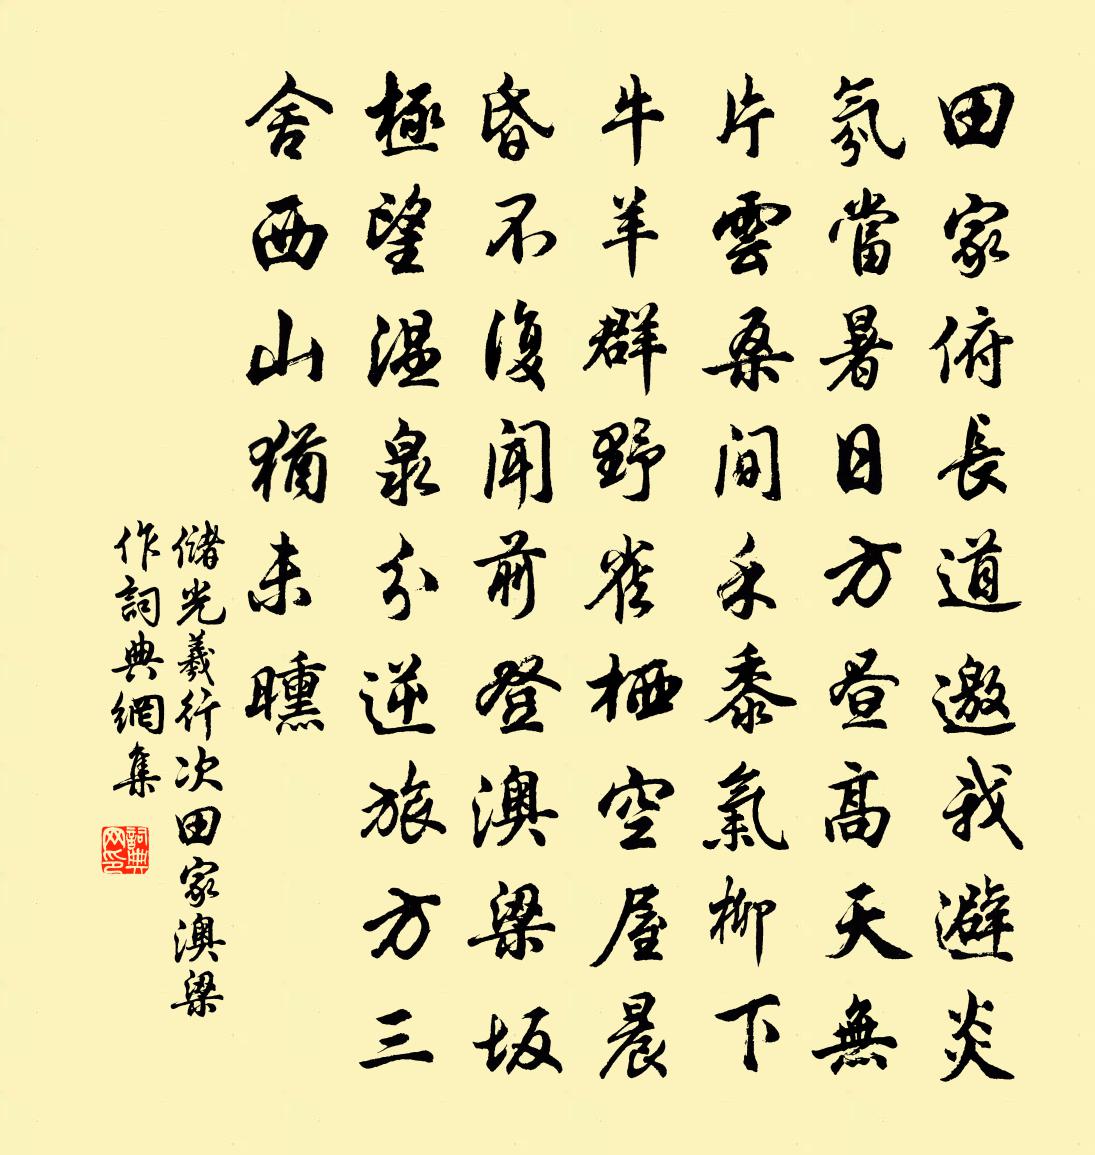 田家俯長道邀我避炎
氛當暑日方晝高天無
片雲桑間禾黍氣柳下
牛羊群野雀棲空屋晨
昏不復聞前登澳梁坂
極望溫泉分逆旅方三
舍西山猶未曛
儲光羲行次田家澳梁
作詞典網集
詞典網印